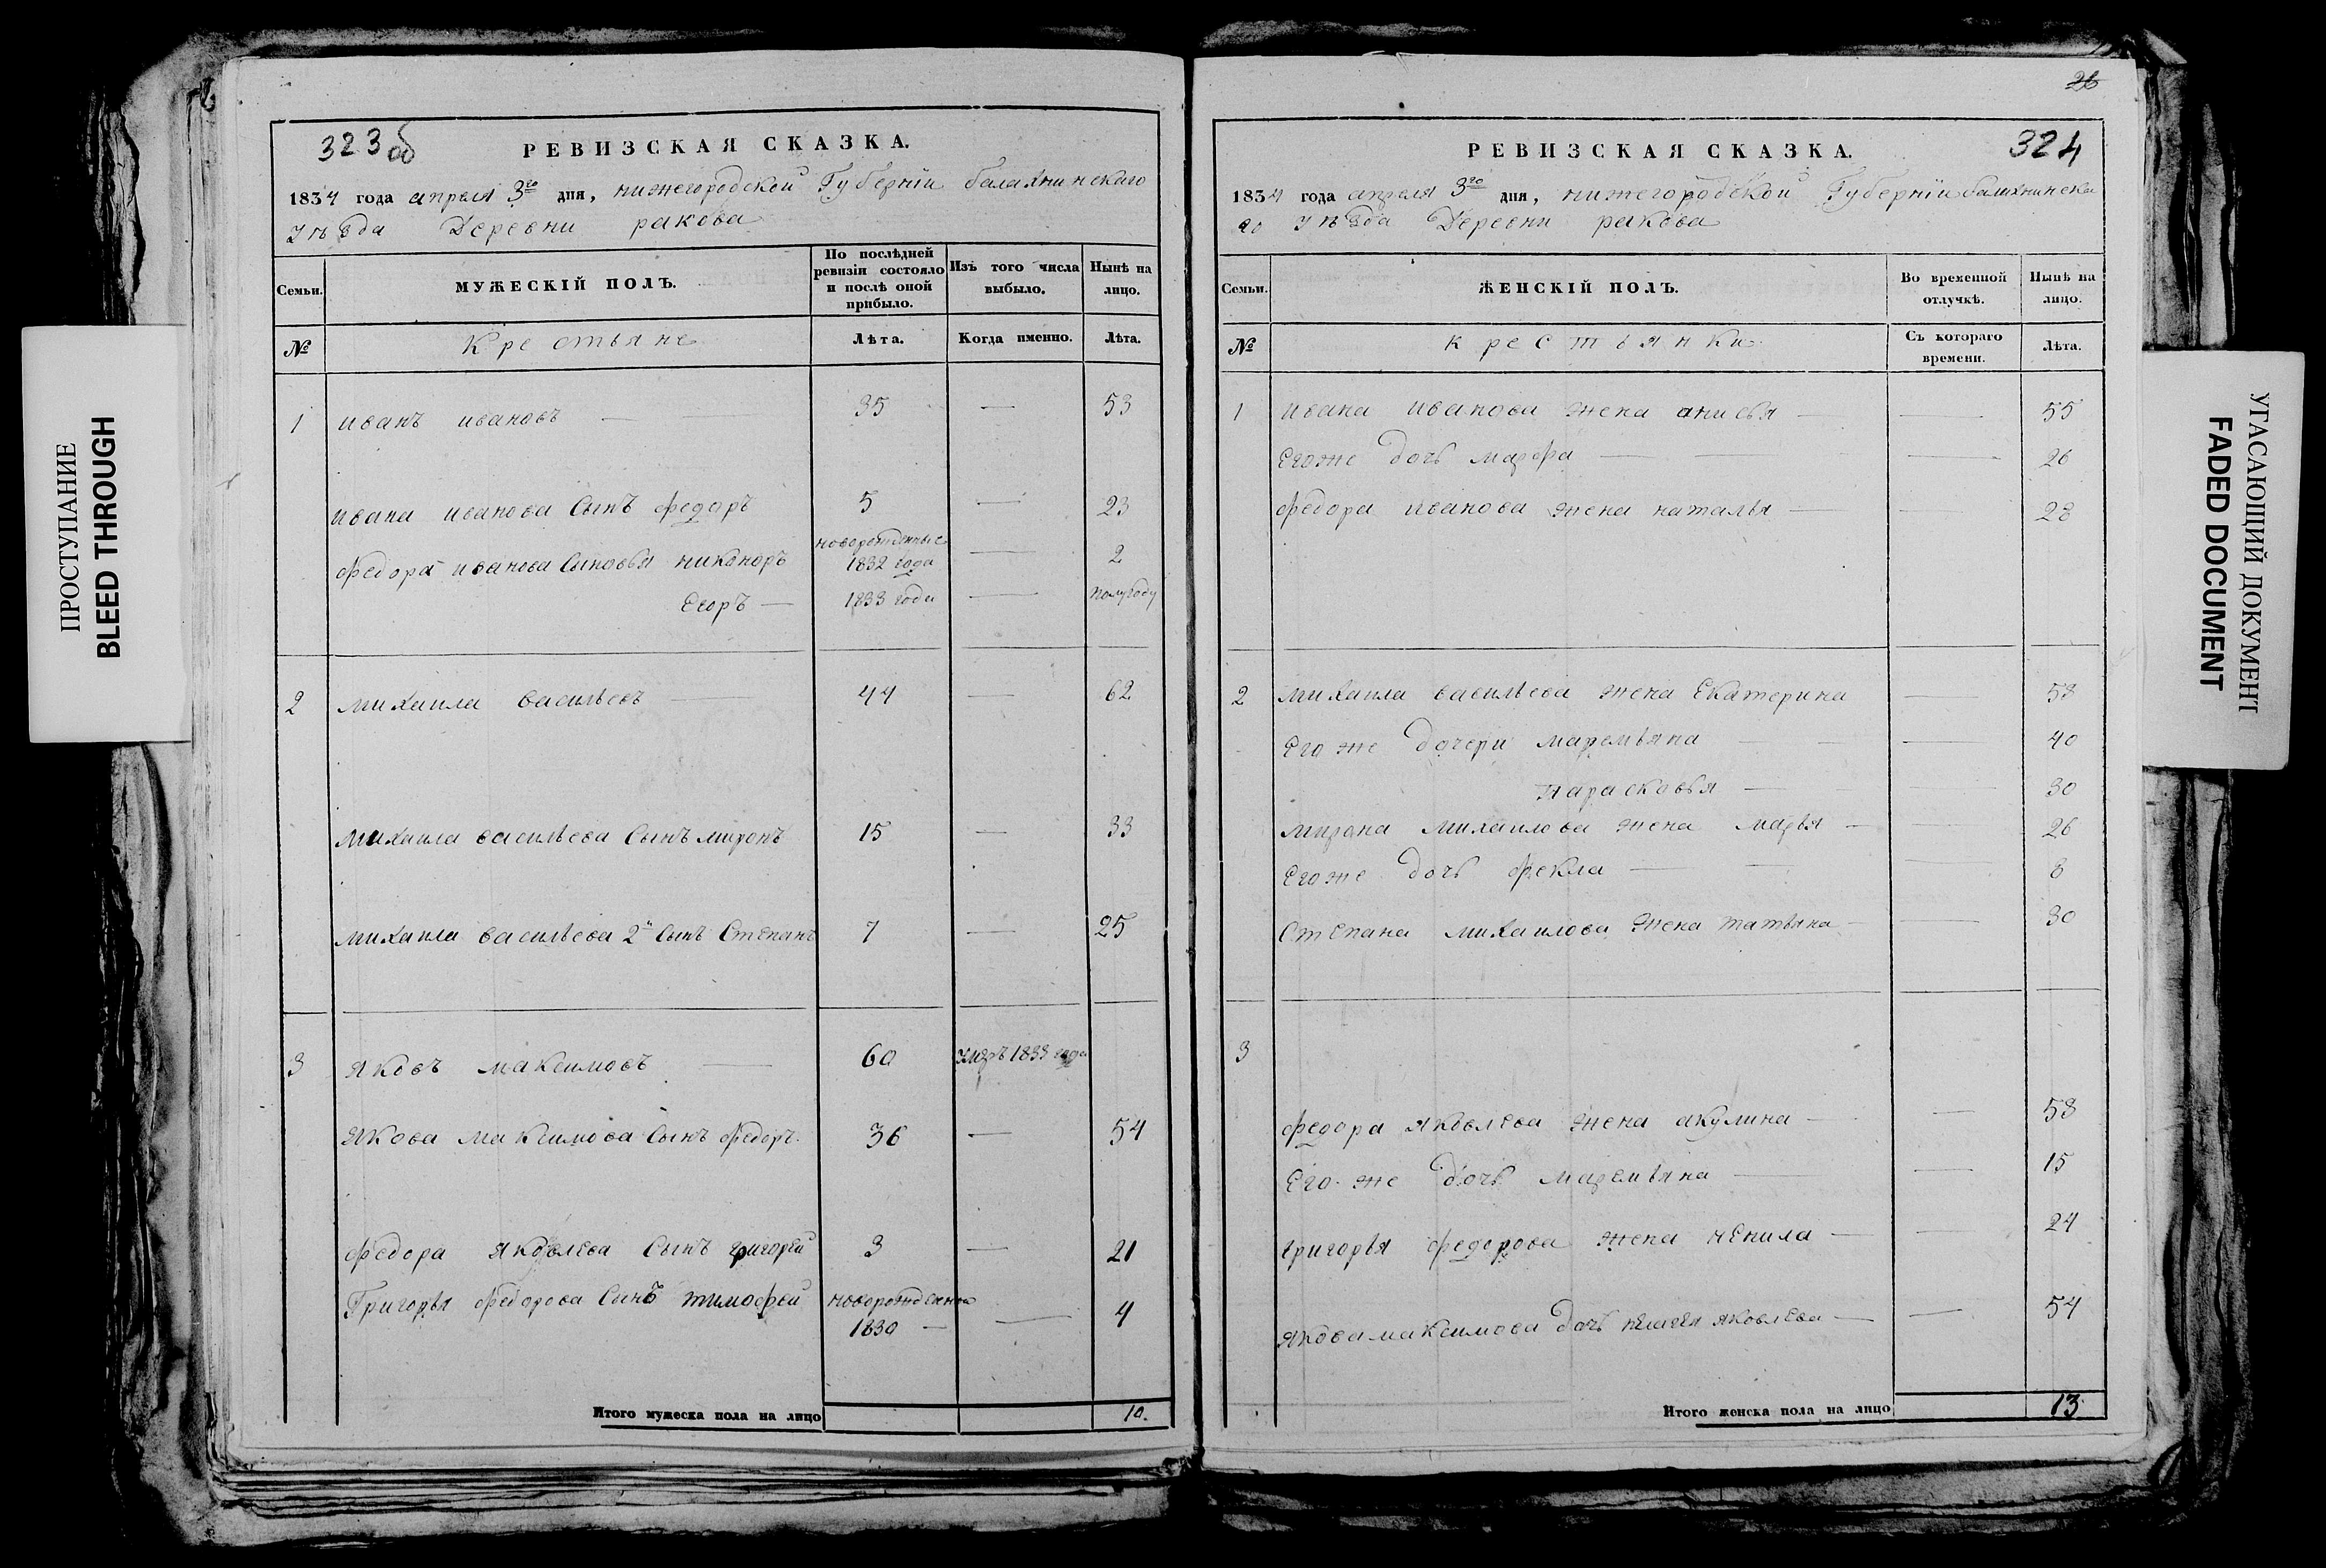 ПРОСТУПАНИЕ
BLEED THROUGH
323 об
РЕВИЗСКАЯ СКАЗКА.
1834 года апреля 3го дня, нижегородской Губернїи балахнинскаго
уѣзда Деревни ракова
Семьи. МУЖЕСКІЙ ПОЛЪ. По послѣдней ревизіи состояло и послѣ оной прибыло. Изъ того числа выбыло. Нынѣ на лицо.
№ Крестьяне Лѣта. Когда именно. Лѣта.
1 иванъ ивановъ — 35 — 53
ивана иванова Сынъ федоръ 5 — 23
федора иванова Сыновья никоноръ новорожденные 1832 года — 2
Егоръ — 1833 года — полугоду
2 михаила васильевъ — 44 — 62
михаила васильева Сынъ миронъ 15 — 33
михаила васильева 2й Сынъ Степанъ 7 — 25
3 яковъ максимовъ — 60 умръ 1833 года
якова максимова Сынъ федоръ 36 — 54
федора яковлева Сынъ григорей 3 — 21
Григорья федорова Сынъ тимофей новорожденно 1830 — — 4
Итого мужеска пола на лицо 10.
26
324
РЕВИЗСКАЯ СКАЗКА.
1834 года апреля 3го дня, нижегородской Губернїи балахнинска
го уѣзда Деревни ракова
Семьи. ЖЕНСКІЙ ПОЛЪ. Во временной отлучкѣ. Нынѣ на лицо.
№ крестьянки Съ котораго времени. Лѣта.
1 ивана иванова жена анисья — — 55
Егоже дочь марфа — — 26
федора иванова жена наталья — — 28
2 михаила васильева жена Екатерина — 58
Его же дочери маремьяна — — 40
парасковья — — 30
мирона михаилова жена марья — — 26
Егоже дочь фекла — — 8
Степана михаилова жена татьяна — — 30
3
федора яковлева жена акулина — — 58
Его же дочь маремьяна — — 15
григорья федорова жена ненила — — 24
якова максимова дочь яковлева — — 54
Итого женска пола на лицо 13
УГАСАЮЩИЙ ДОКУМЕНТ
FADED DOCUMENT